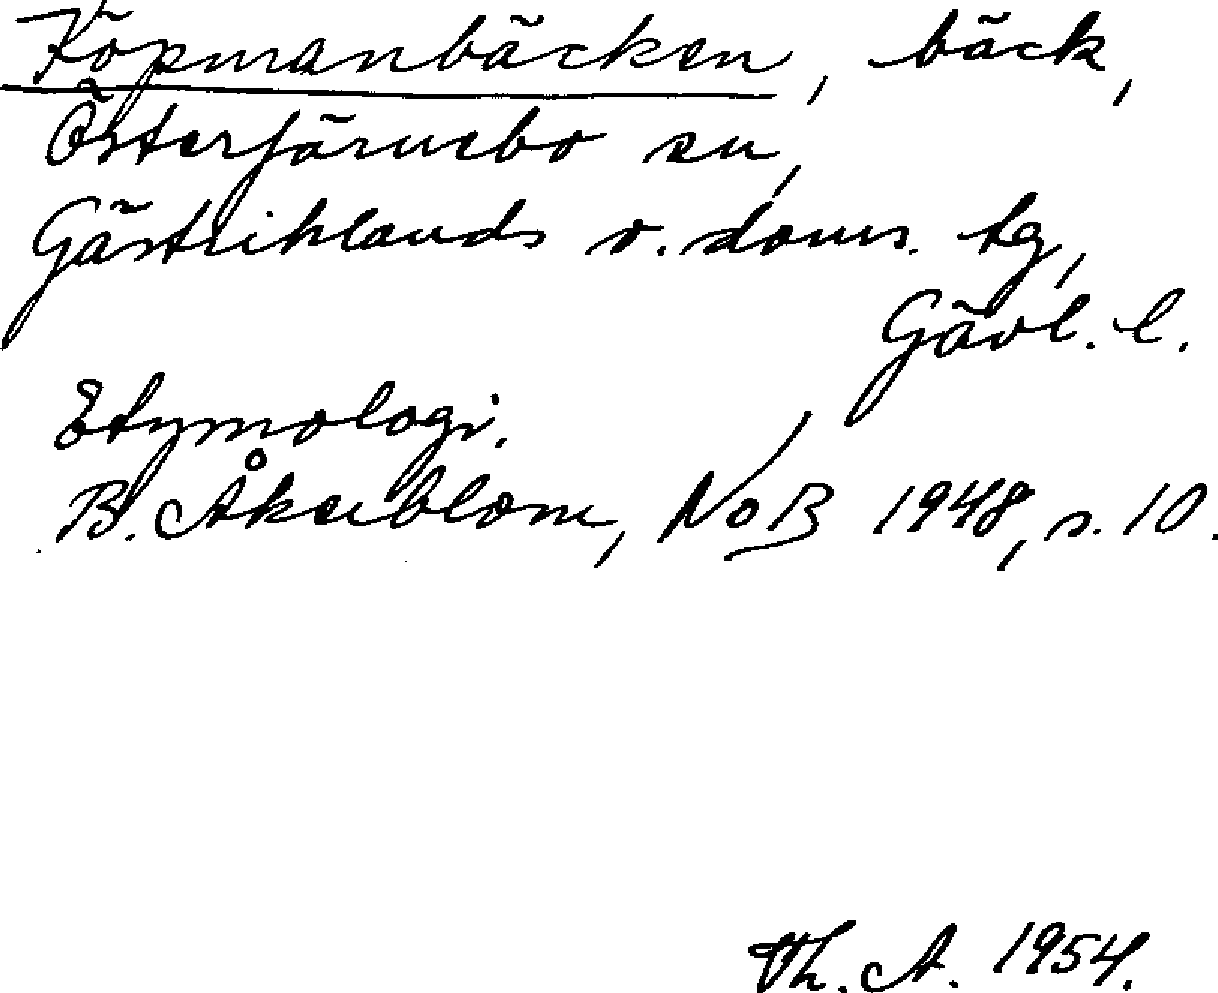 Köpmanbäcken, bäck,
Österfärnebo sn,
Gästriklands ö. doms. tg,
Gävl. l.
Etymologi.
B. Åkerblom, NoB 1948, s. 10.
Th. A. 1954.